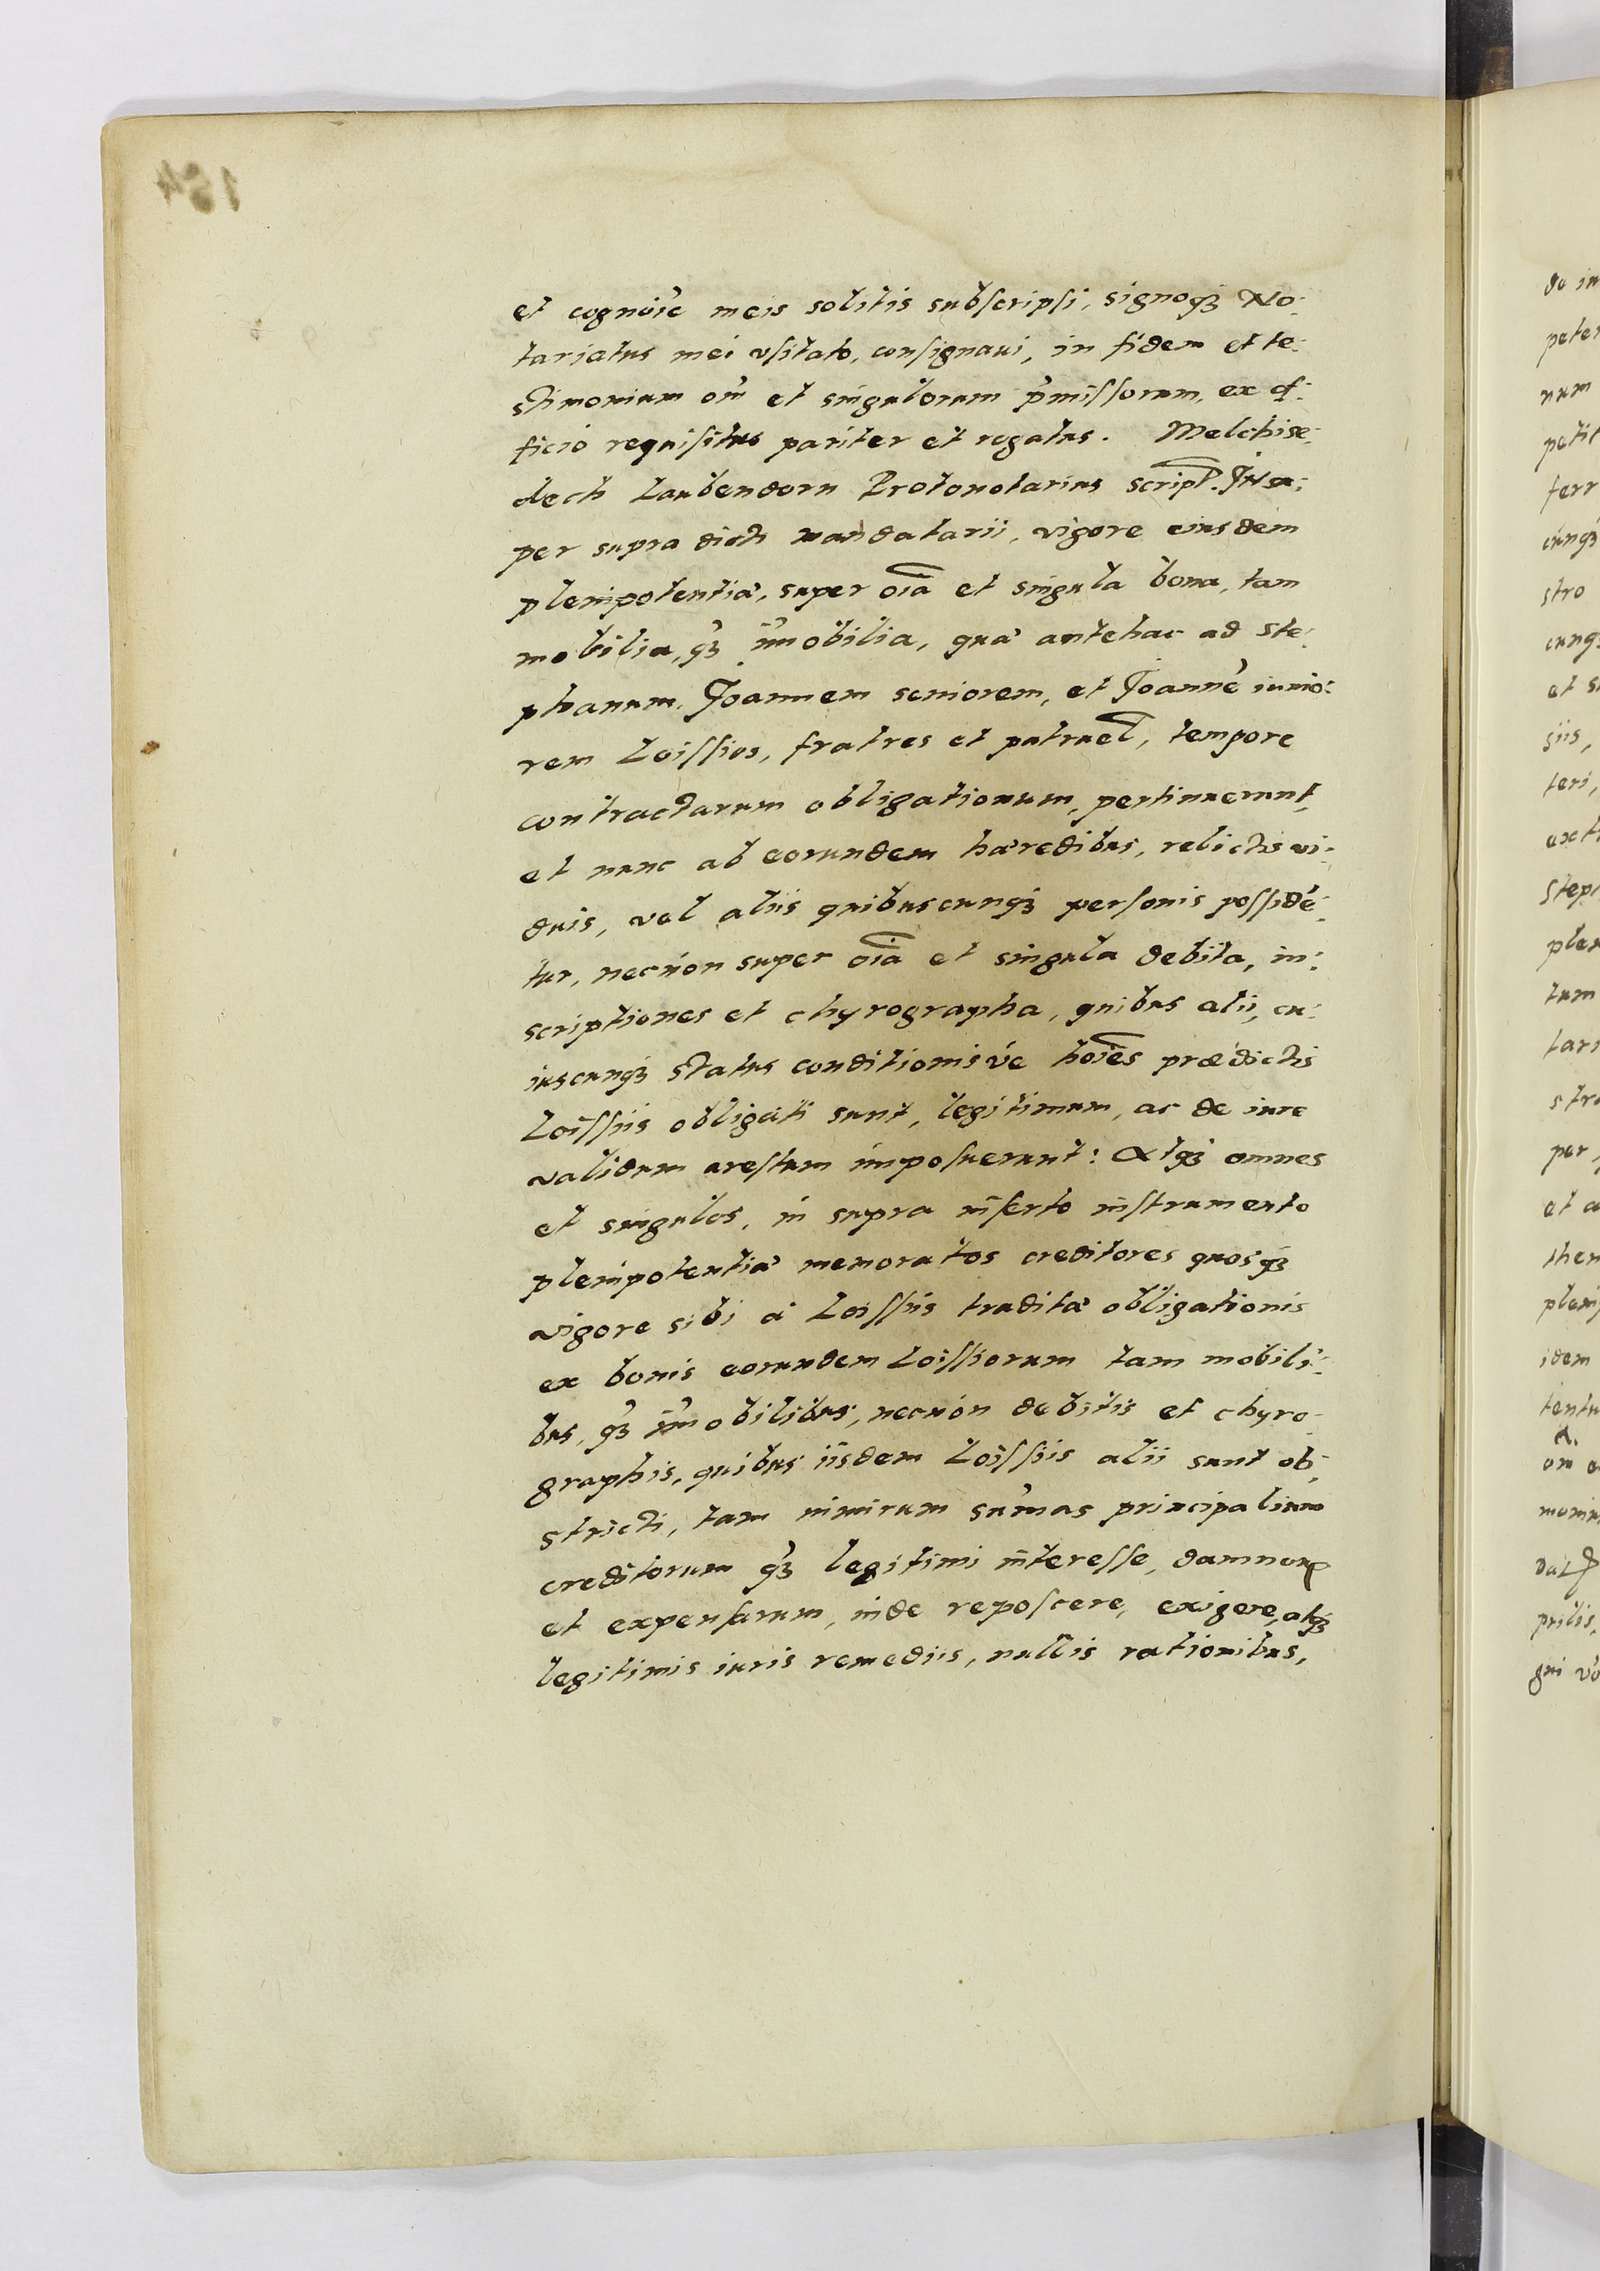 et cognoīe meis solitis subscripsi, signoqꝫ No:
tariatus mei vsitato, consignaui, in fidem et te:
stimonium oīm et singulorum p̄missorum, ex of:
ficio requisitus pariter et rogatus. Melchise:
dech Laubendorn Protonotarius script. Insu:
per supra dicti mandatarii, vigore eiusdem
plenipotentiæ, super oīa et singula bona, tam
mobilia, qꝫ im̄obilia, quæ antehac ad Ste:
phanum, Joannem seniorem, et Joannē iunio:
rem Loissios, fratres et patruel, tempore
contractarum obligationum, pertinuerunt,
et nunc ab eorundem hæredibus, relictis vi:
duis, vel aliis quibuscunqꝫ personis possidē:
tur, necnon super oīa et singula debita, in:
scriptiones et chyrographa, quibus alii, cu:
iuscunqꝫ status conditionisve hoīes prædictis
Loissiis obligati sunt, legitimum, ac de iure
validum arestum imposuerunt: Atqꝫ omnes
et singulos, in supra inserto instrumento
plenipotentiæ memoratos creditores quosqꝫ
vigore sibi à Loissiis traditæ obligationis
ex bonis eorundem Loissiorum tam mobili:
bus, qꝫ im̄obilibus, necnon debitis et chyro:
graphis, quibus iisdem Loissiis alii sunt ob:
stricti, tam nimirum sum̄as principalium
creditorum qꝫ legitimi interesse, damnorꝫ
et expensarum, inde reposcere, exigere, atqꝫ
legitimis iuris remediis, nullis rationibus,